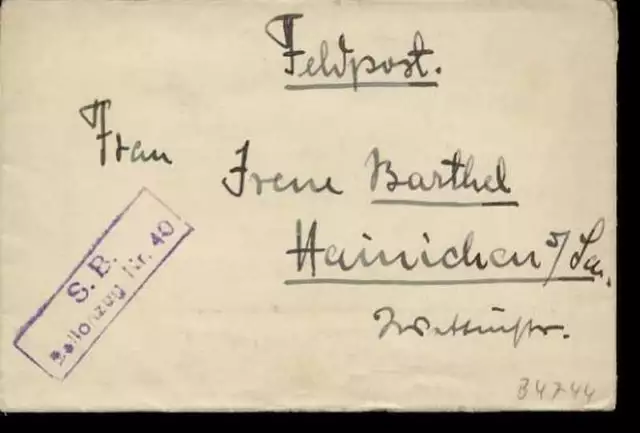 Feldpost.
Frau Irene Barthel
Hainichen i/Sa.
S. B.
Ballonzug Nr. 40
B4744